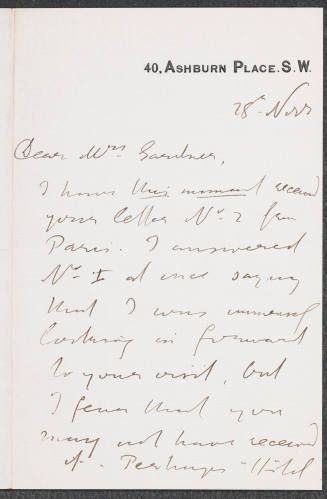 40, ASHBURN PLACE. S.W.
28th Novr
Dear Mrs. Gardner,
I have this moment received
your letter No. 2 from
Paris. I answered
No. I at once saying
that I was
looking forward
to your visit, but
I fear that you
may not have received
it. Perhaps "Hotel